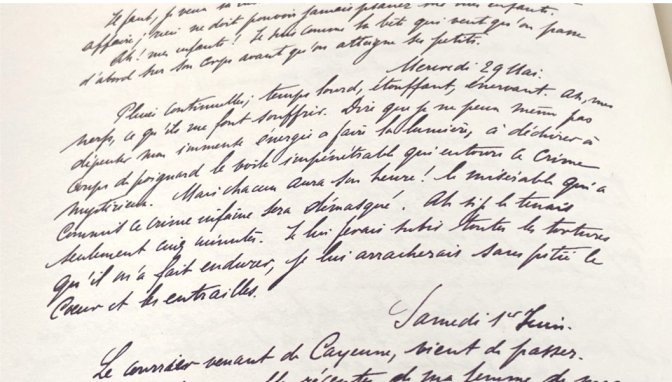 Il faut, je veux
affaire, ceci ne doit pouvoir jamais planer sur mes enfants.
Ah! mes enfants! Je suis comme la bête qui veut qu'on passe
d'abord sur son corps avant qu'on atteigne ses petits.
Mercredi 29 Mai.
Pluies continuelles; temps lourd, étouffant, énervant. Ah, mes
nerfs, ce qu'ils me font souffrir. Dire que je ne peux même pas
dépenser mon immense énergie à faire la lumière, à déchirer à
coups de poignard le voile impénétrable qui entoure ce crime
mystérieux. Mais chacun aura son heure! le misérable qui a
commis ce crime infâme sera démasqué. Ah si je le tenais
seulement cinq minutes. Je lui ferais subir toutes les tortures
qu'il m'a fait endurer, je lui arracherais sans pitié le
Cœur et les entrailles.
Samedi 1er Juin.
Le courrier venant de Cayenne, vient de passer.
récentes de ma femme, de mes